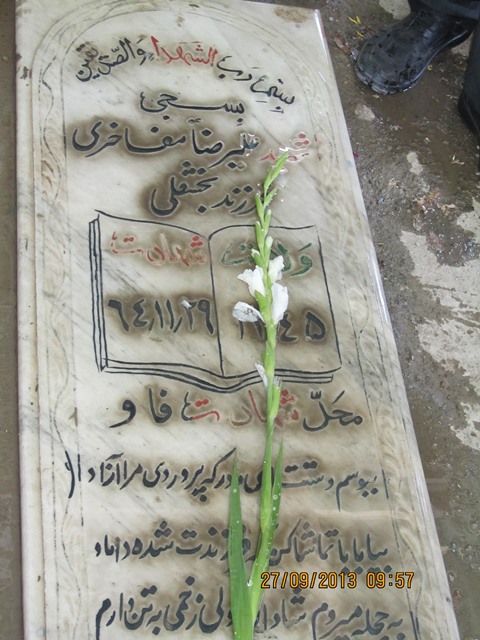 بسم رب الشهداء والصدیقین
بسیجی
شهید علیرضا مفاخری
فرزند بخشعلی
ولادت
۱۳۴۵
شهادت
۶۴/۱۱/۲۹
محل شهادت فاو
ببوسم دستت ای مادر که پروردی مرا آزاد
بیا بابا تماشا کن فرزندت شده داماد
به حجله میروم شاد ولی زخمی به تن دارم
27/09/2013 09:57